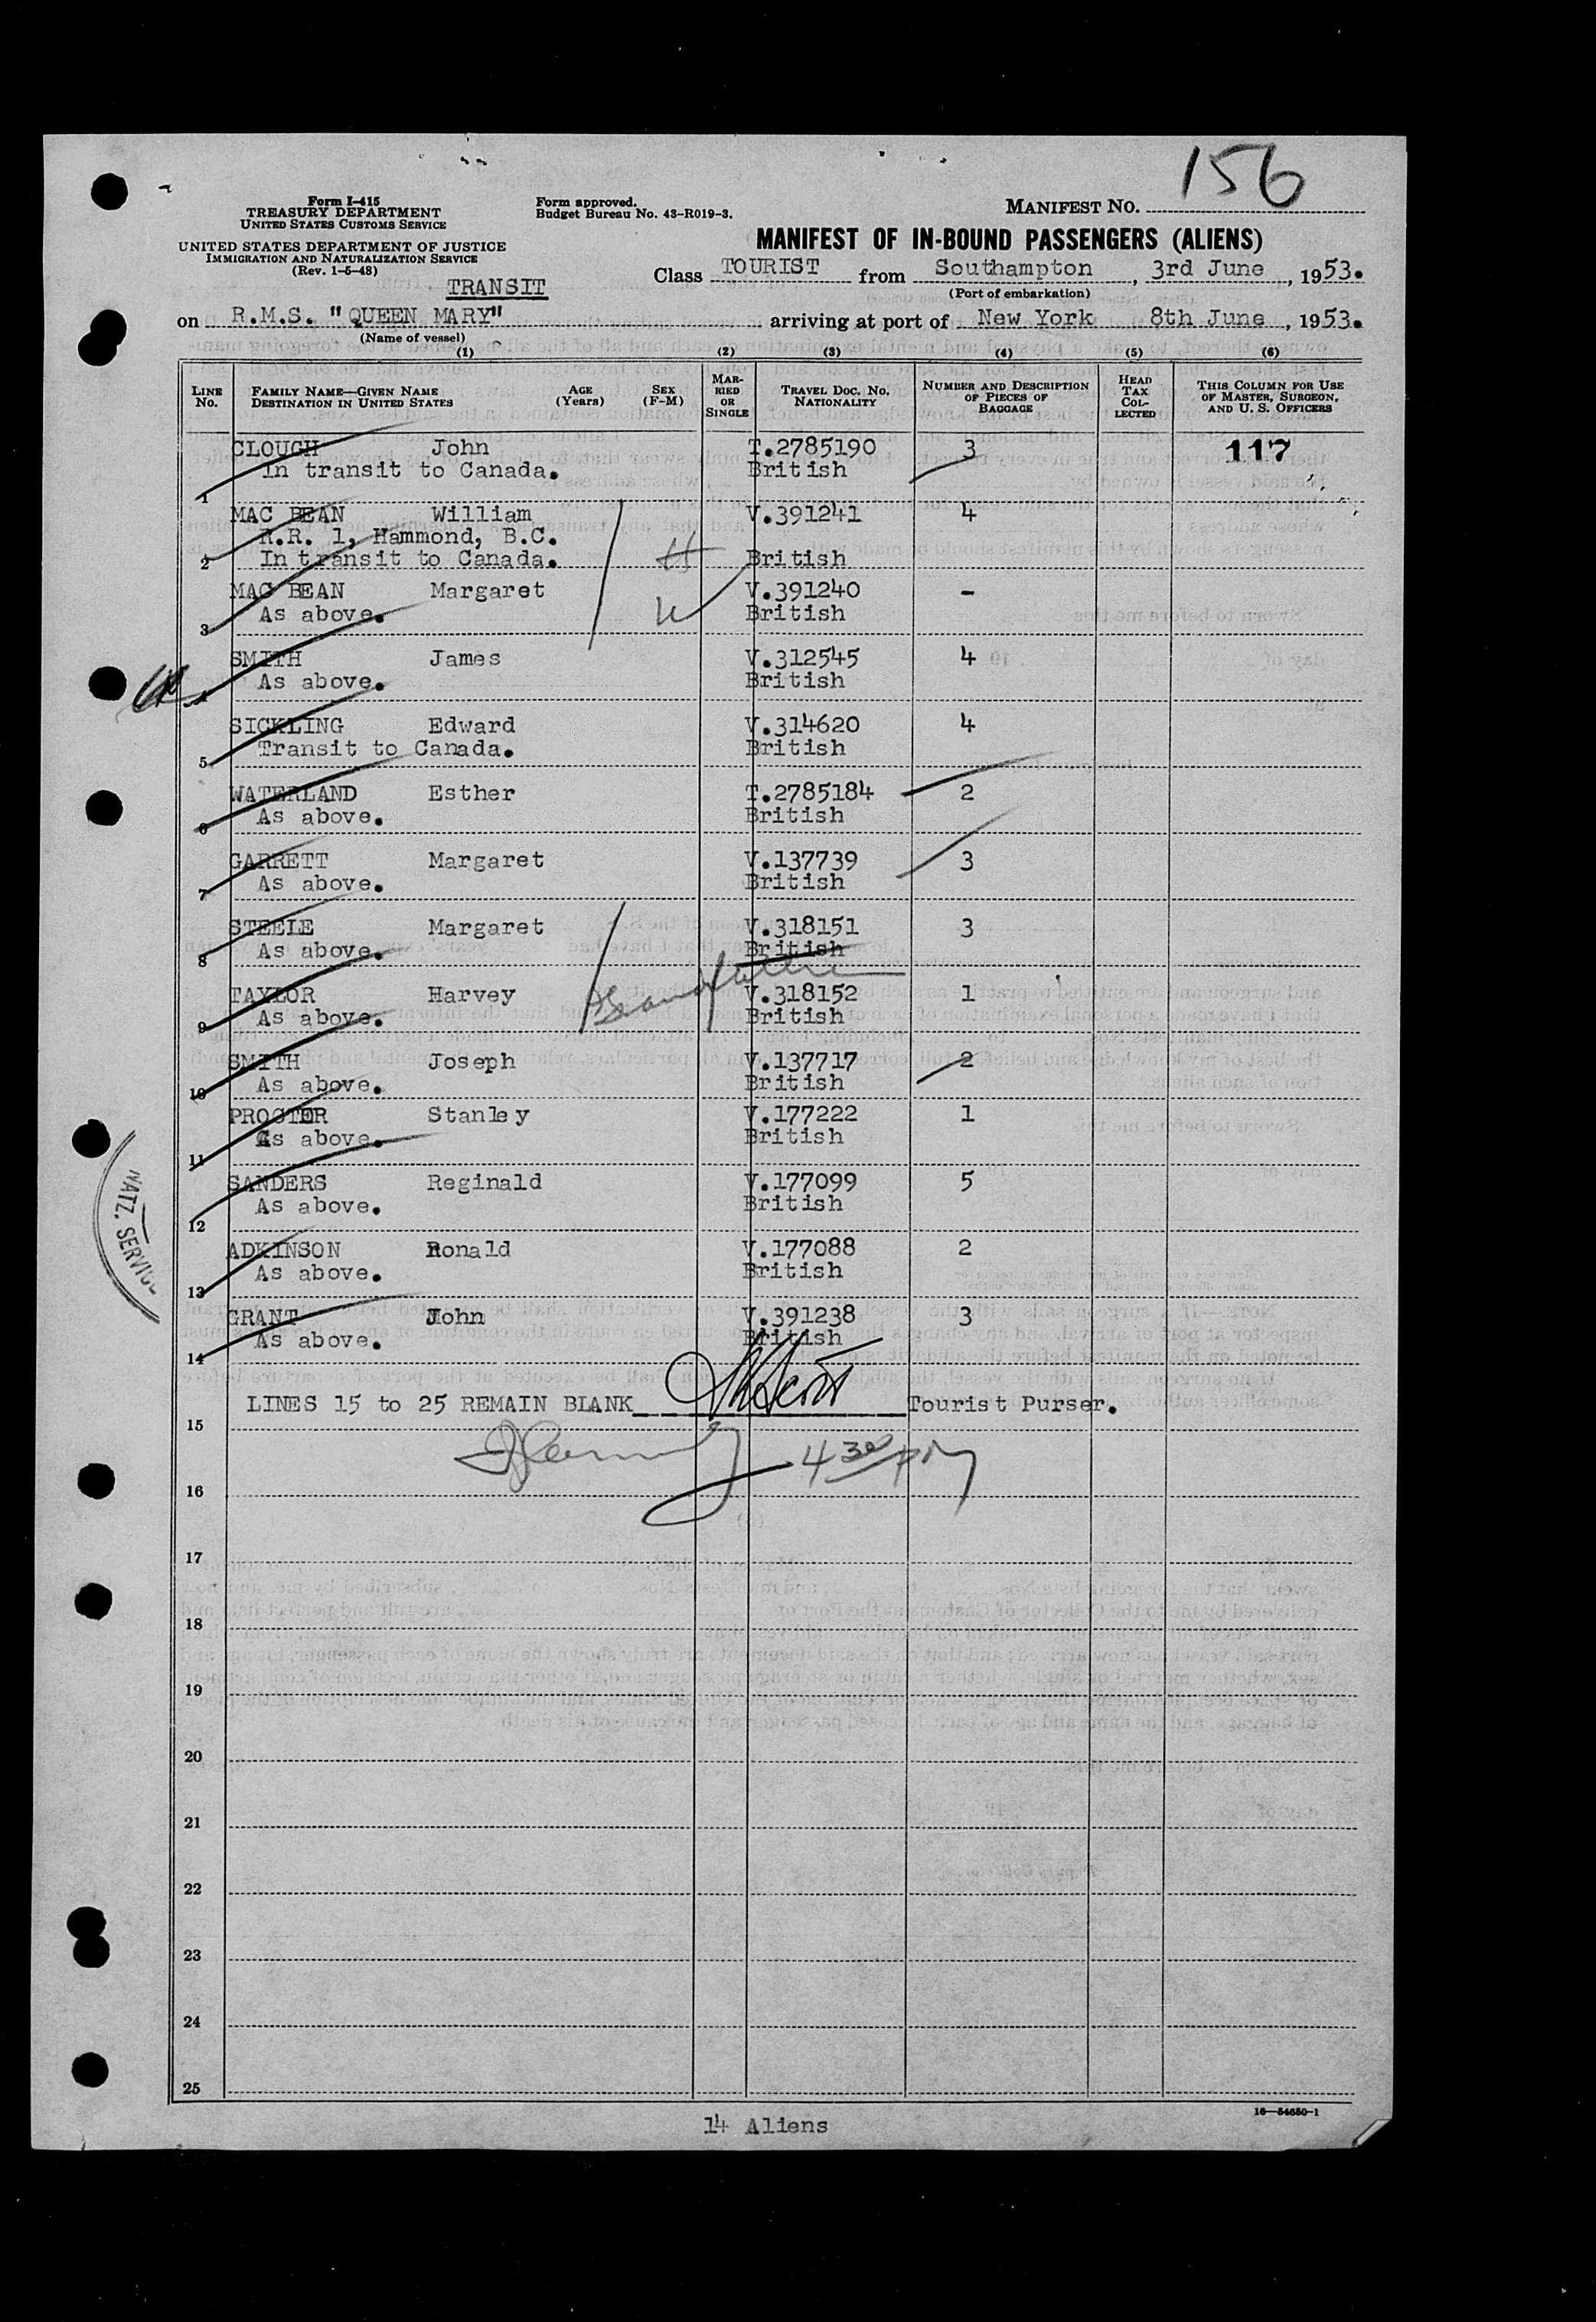 156
Form I-415
TREASURY DEPARTMENT
UNITED STATES CUSTOMS SERVICE
UNITED STATES DEPARTMENT OF JUSTICE
IMMIGRATION AND NATURALIZATION SERVICE
(Rev. 1-5-48)
Form approved.
Budget Bureau No. 43-R019-3.
MANIFEST NO.
MANIFEST OF IN-BOUND PASSENGERS (ALIENS)
TRANSIT
Class TOURIST from Southampton, 3rd June, 1953.
(Port of embarkation)
on R.M.S. "QUEEN MARY" arriving at port of New York 8th June, 1953.
(Name of vessel)
(1) (2) (3) (4) (5) (6)
LINE No. FAMILY NAME—GIVEN NAME DESTINATION IN UNITED STATES AGE (Years) SEX (F-M) MARRIED OR SINGLE TRAVEL DOC. NO. NATIONALITY NUMBER AND DESCRIPTION OF PIECES OF BAGGAGE HEAD TAX COLLECTED THIS COLUMN FOR USE OF MASTER, SURGEON, AND U. S. OFFICERS
CLOUGH John T.2785190 3 117
1 In transit to Canada. British
MAC BEAN William V.391241 4
R.R. 1, Hammond, B.C.
2 In transit to Canada. H British
MAC BEAN Margaret V.391240 -
3 As above. W British
SMITH James V.312545 4
4 As above. British
SICKLING Edward V.314620 4
5 Transit to Canada. British
WATERLAND Esther T.2785184 2
6 As above. British
GARRETT Margaret V.137739 3
7 As above. British
STEELE Margaret V.318151 3
8 As above. British
TAYLOR Harvey V.318152 1
9 As above. British
SMITH Joseph V.137717 2
10 As above. British
PROCTOR Stanley V.177222 1
11 As above. British
SANDERS Reginald V.177099 5
12 As above. British
ADKINSON Ronald V.177088 2
13 As above. British
GRANT John V.391238 3
14 As above. British
LINES 15 to 25 REMAIN BLANK Tourist Purser.
15
4 30 PM
16
17
18
19
20
21
22
23
24
25
14 Aliens
16—54650-1
NATZ. SERVICE